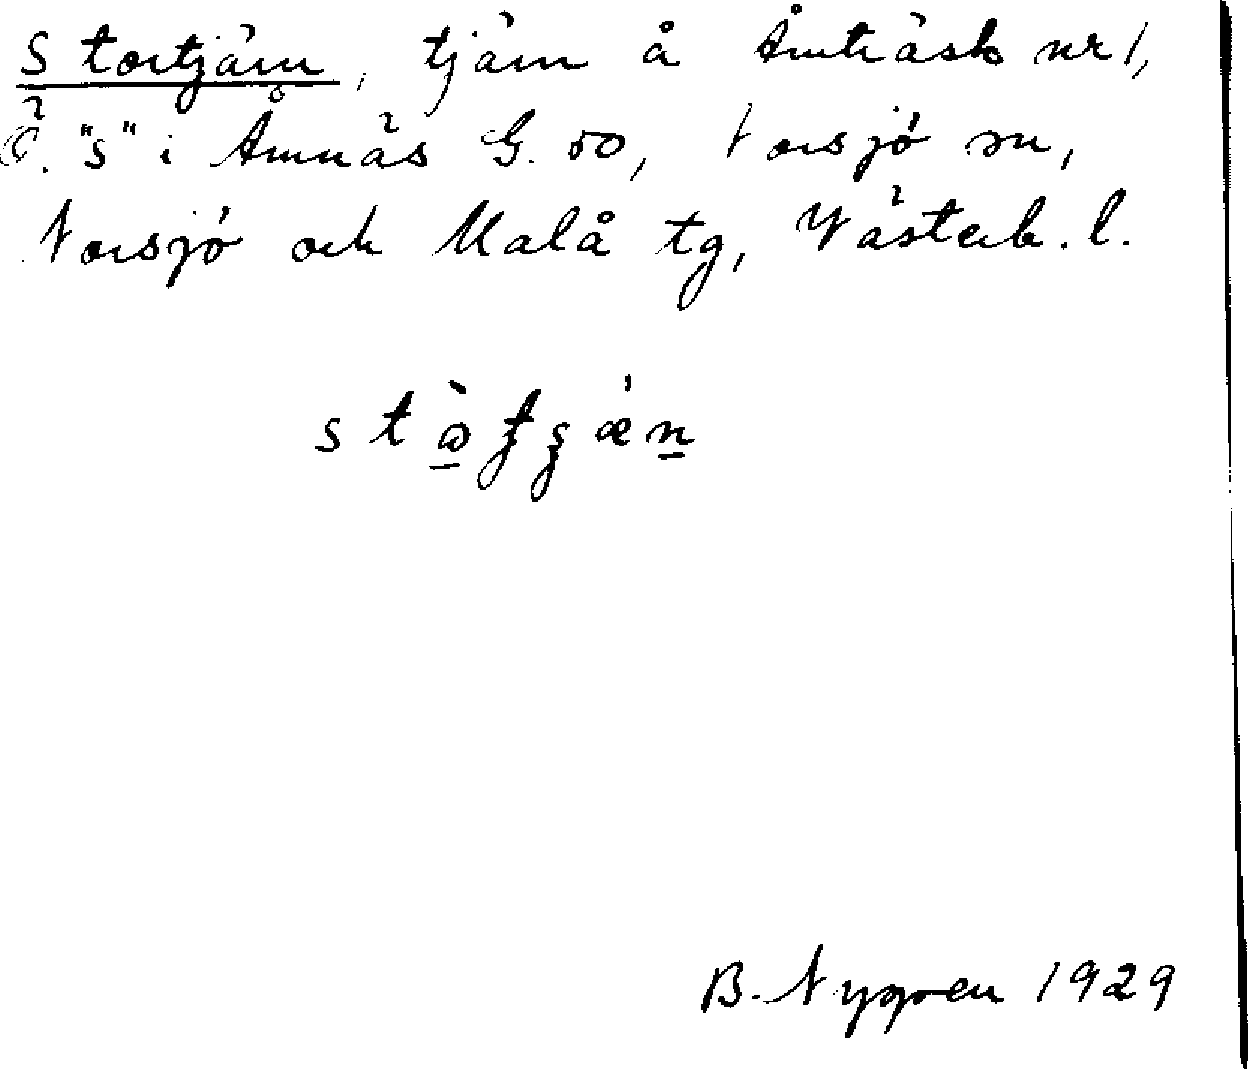 Stortjärn, tjärn å Åmträsk nr 1,
Ö. "s" i Åmnäs G. 50, Norsjö sn,
Norsjö och Malå tg, Västerb. l.
B. Nygren 1929